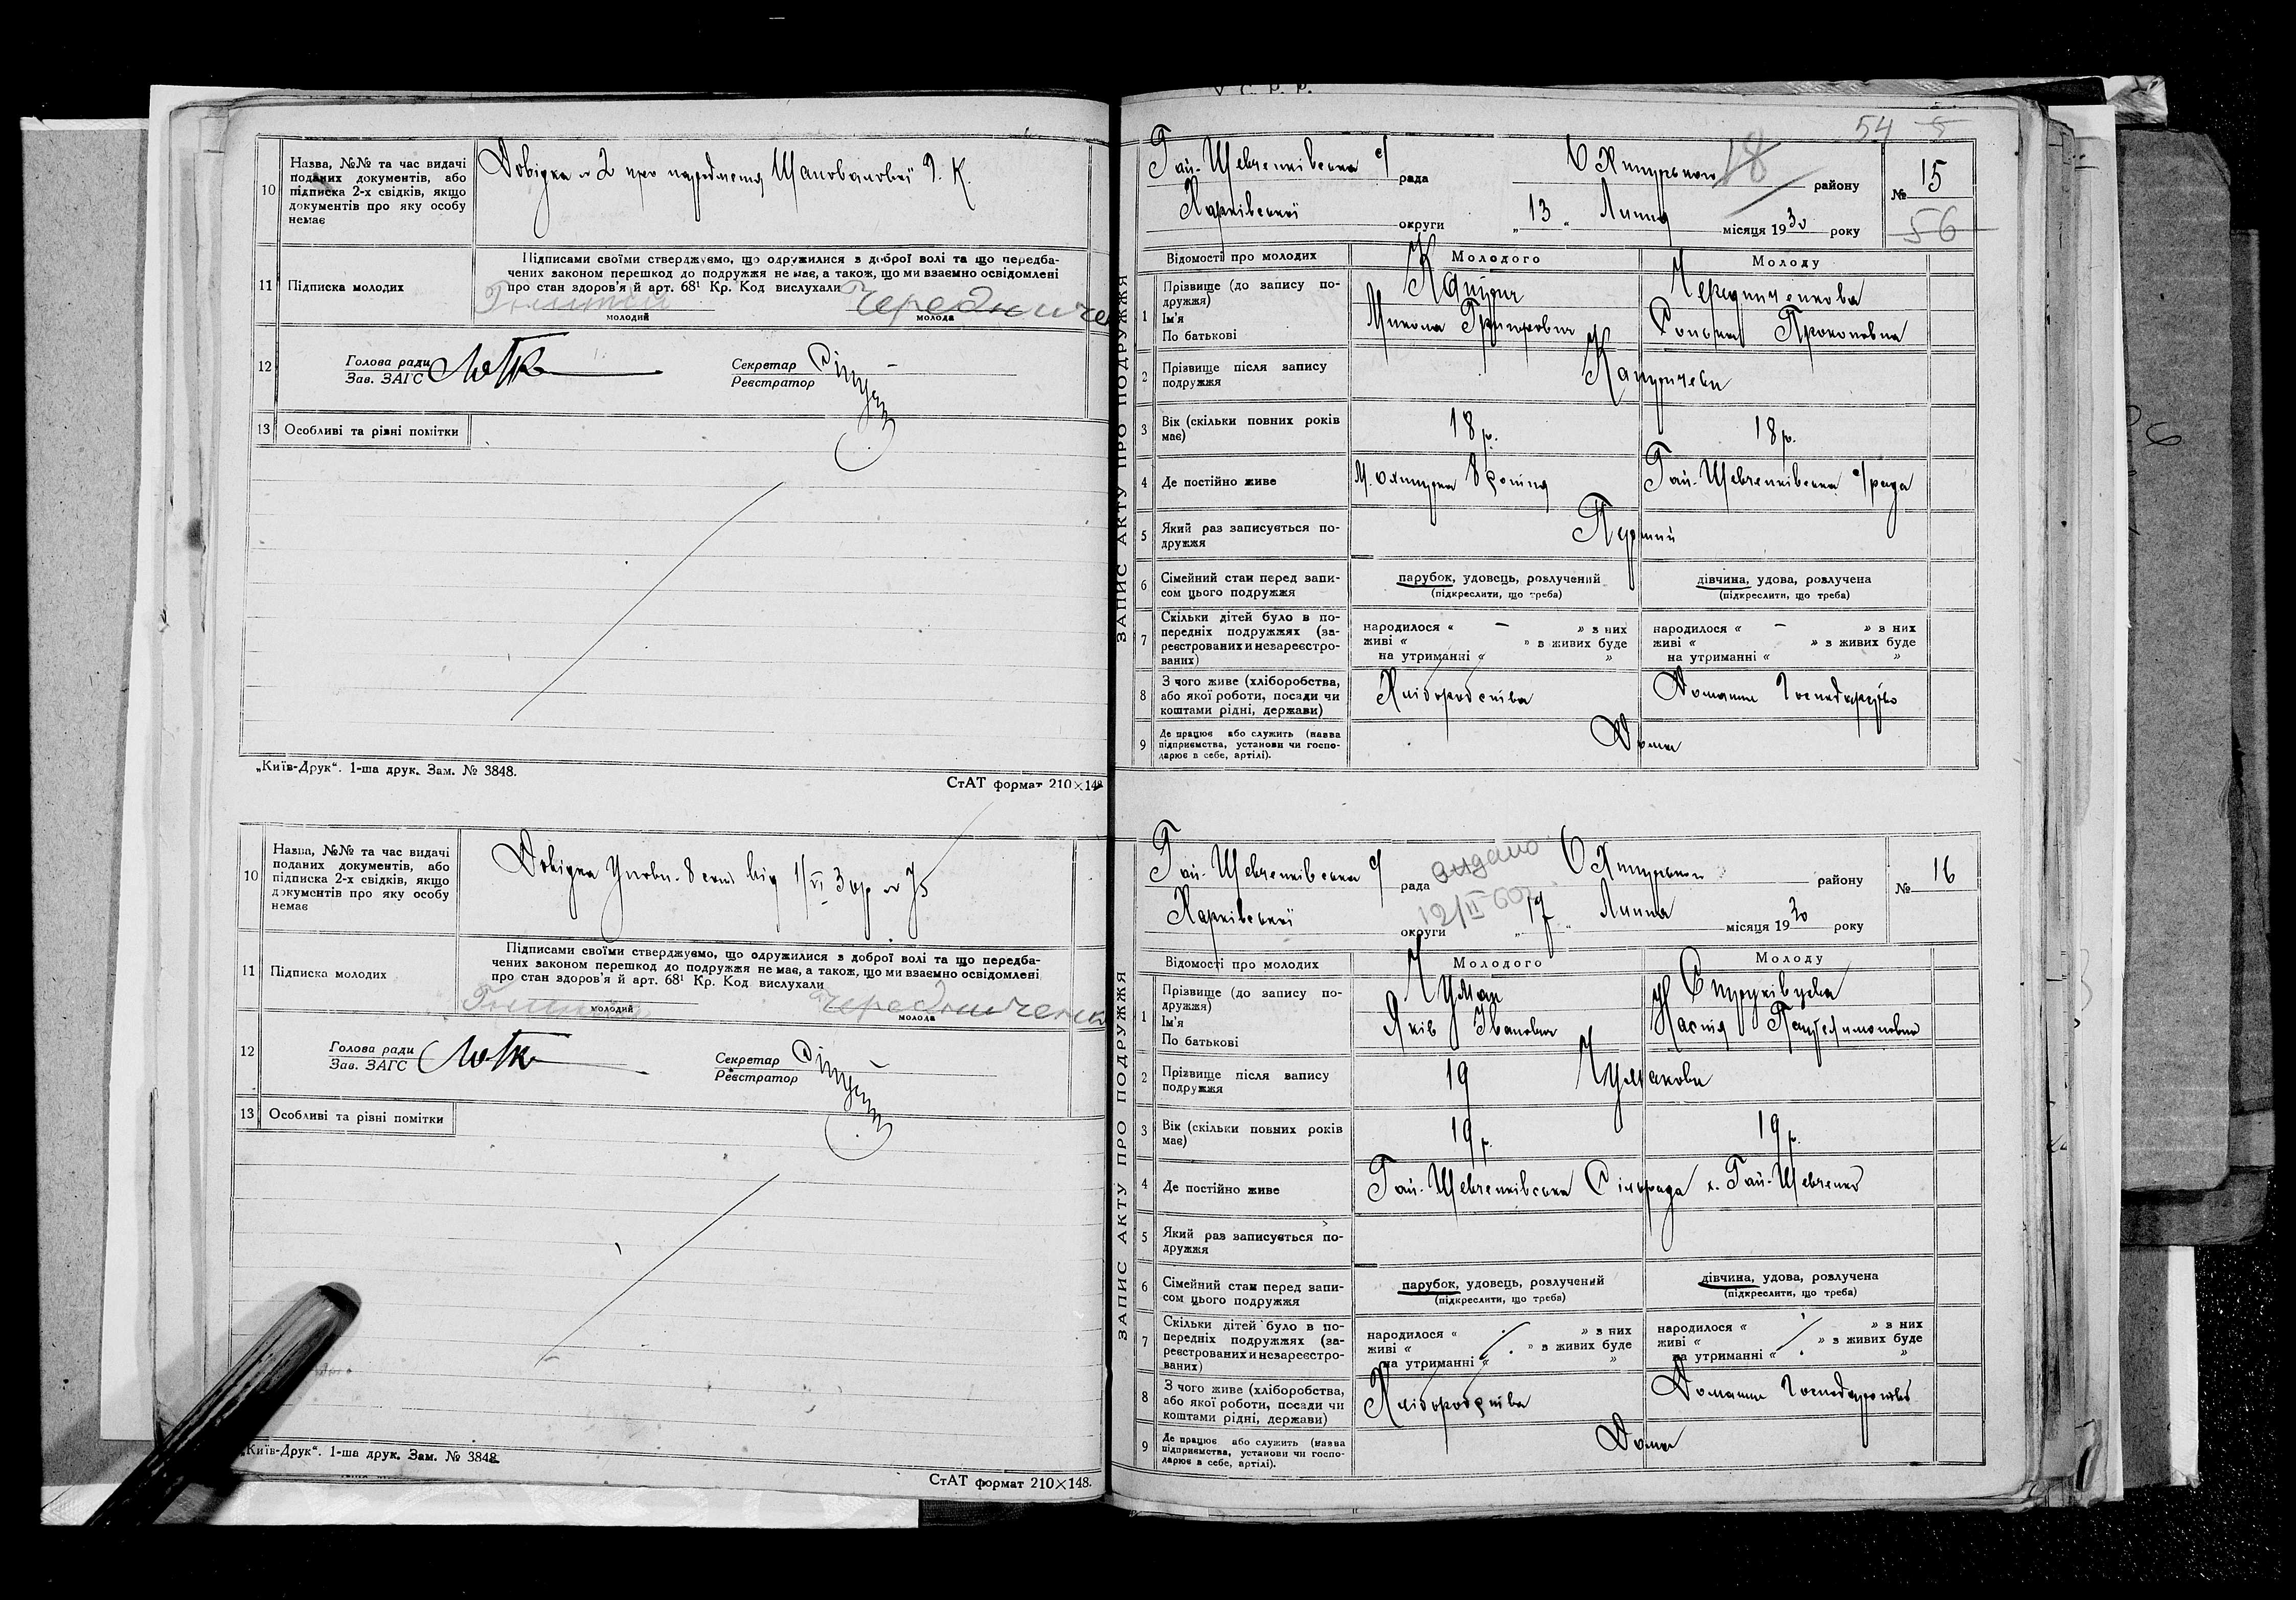 10
Назва, №№ та час видачі
поданих документів, або
підписка 2-х свідків, якщо
документів про яку особу
немає
Довідка № 2 про народження
11
Підписка молодих
Підписами своїми стверджуємо, що одружилися з доброї волі та що передба-
чених законом перешкод до подружжя не має, а також, що ми взаємно освідомлені
про стан здоров'я й арт. 68¹ Кр. Код вислухали
молодий
молода
12
Голова ради
Зав. ЗАГС
Секретар
Реєстратор
13 Особливі та рівні помітки
„Київ-Друк“. 1-ша друк. Зам. № 3848.
СтАТ формат 210×148
10
Назва, №№ та час видачі
поданих документів, або
підписка 2-х свідків, якщо
документів про яку особу
немає
Довідка від 1/VI 30р № 75
11
Підписка молодих
Підписами своїми стверджуємо, що одружилися з доброї волі та що передба-
чених законом перешкод до подружжя не має, а також, що ми взаємно освідомлені
про стан здоров'я й арт. 68¹ Кр. Код вислухали
молодий
молода
12
Голова ради
Зав. ЗАГС
Секретар
Реєстратор
13 Особливі та рівні помітки
„Київ-Друк“. 1-ша друк. Зам. № 3848
СтАТ формат 210×148.
У С. Р. Р.
54
ЗАПИС АКТУ ПРО ПОДРУЖЖЯ
Гай-Шевченківська с/ рада 18 району
№ 15
Харківської округи „13“ Липня місяця 1930 року
56
Відомості про молодих Молодого Молоду
1
Прізвище (до запису по-
дружжя)
Ім'я
По батькові
Микола Григорович
Прокоповна
2
Прізвище після запису
подружжя
3
Вік (скільки повних років
має)
18 р.
18 р.
4
Де постійно живе
Гай-Шевченківська с/рада
5
Який раз записується по-
дружжя
Перший
6
Сімейний стан перед запи-
сом цього подружжя
парубок, удовець, розлучений
(підкреслити, що треба)
дівчина, удова, розлучена
(підкреслити, що треба)
7
Скільки дітей було в по-
передніх подружжях (за-
реєстрованих и незареєстро-
ваних)
народилося « – » з них
живі « » з живих буде
на утриманні « »
народилося « – » з них
живі « » з живих буде
на утриманні « »
8
З чого живе (хліборобства,
або якої роботи, посади чи
коштами рідні, держави)
Хліборобства
Домашнє Господарство
9
Де працює або служить (назва
підприємства, установи чи госпо-
дарює в себе, артілі).
Дома
ЗАПИС АКТУ ПРО ПОДРУЖЖЯ
Гай-Шевченківська с/ рада району
№ 16
Харківської округи „17“ Липня місяця 1930 року
Відомості про молодих Молодого Молоду
1
Прізвище (до запису по-
дружжя)
Ім'я
По батькові
Чумак
Яків Іванович
Настя
2
Прізвище після запису
подружжя
19
Чумакови
3
Вік (скільки повних років
має)
19 р.
19 р.
4
Де постійно живе
Гай-Шевченківська Сільрада х. Гай-Шевченко
5
Який раз записується по-
дружжя
6
Сімейний стан перед запи-
сом цього подружжя
парубок, удовець, розлучений
(підкреслити, що треба)
дівчина, удова, розлучена
(підкреслити, що треба)
7
Скільки дітей було в по-
передніх подружжях (за-
реєстрованих и незареєстро-
ваних)
народилося « » з них
живі « » з живих буде
на утриманні « »
народилося « » з них
живі « » з живих буде
на утриманні « »
8
З чого живе (хліборобства,
або якої роботи, посади чи
коштами рідні, держави)
Хліборобства
Домашнє Господарство
9
Де працює або служить (назва
підприємства, установи чи госпо-
дарює в себе, артілі).
Дома